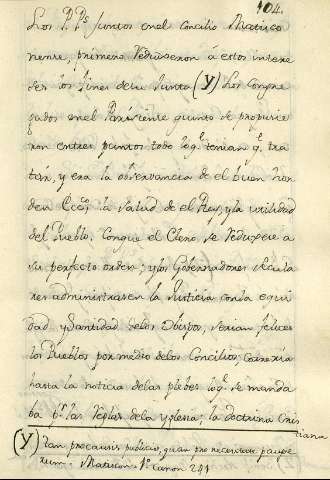 104.
Los P.P.s Juntos en el Concilio Matisco
nense, primero redugeron á estos interes
ser los fines de su Junta (Y) Los Congre
gados en el Parisiense quinto se propusie
ron entres puntos todo lo q.e tenian q.e tra
tar, y era la observancia de el buen hor
den Ecc.o, la salud de el Rey, y la utilidad
del Pueblo. Conque el Clero, se reduxere a
su perfecto orden; y los Gobernadores secula
res administrasen la Justicia con la equi
dad y Santidad delos Obispos, serian felices
los Pueblos por medio delos Concilios, correria
hasta la noticia delas plebes lo q.e se manda
ba p.r las Reglas dela Yglesia; la doctrina Cris
tiana
(Y) tan pro causis publicis, quam pro necesitate paupe
rum. Matiscon. 1.o Canon 241